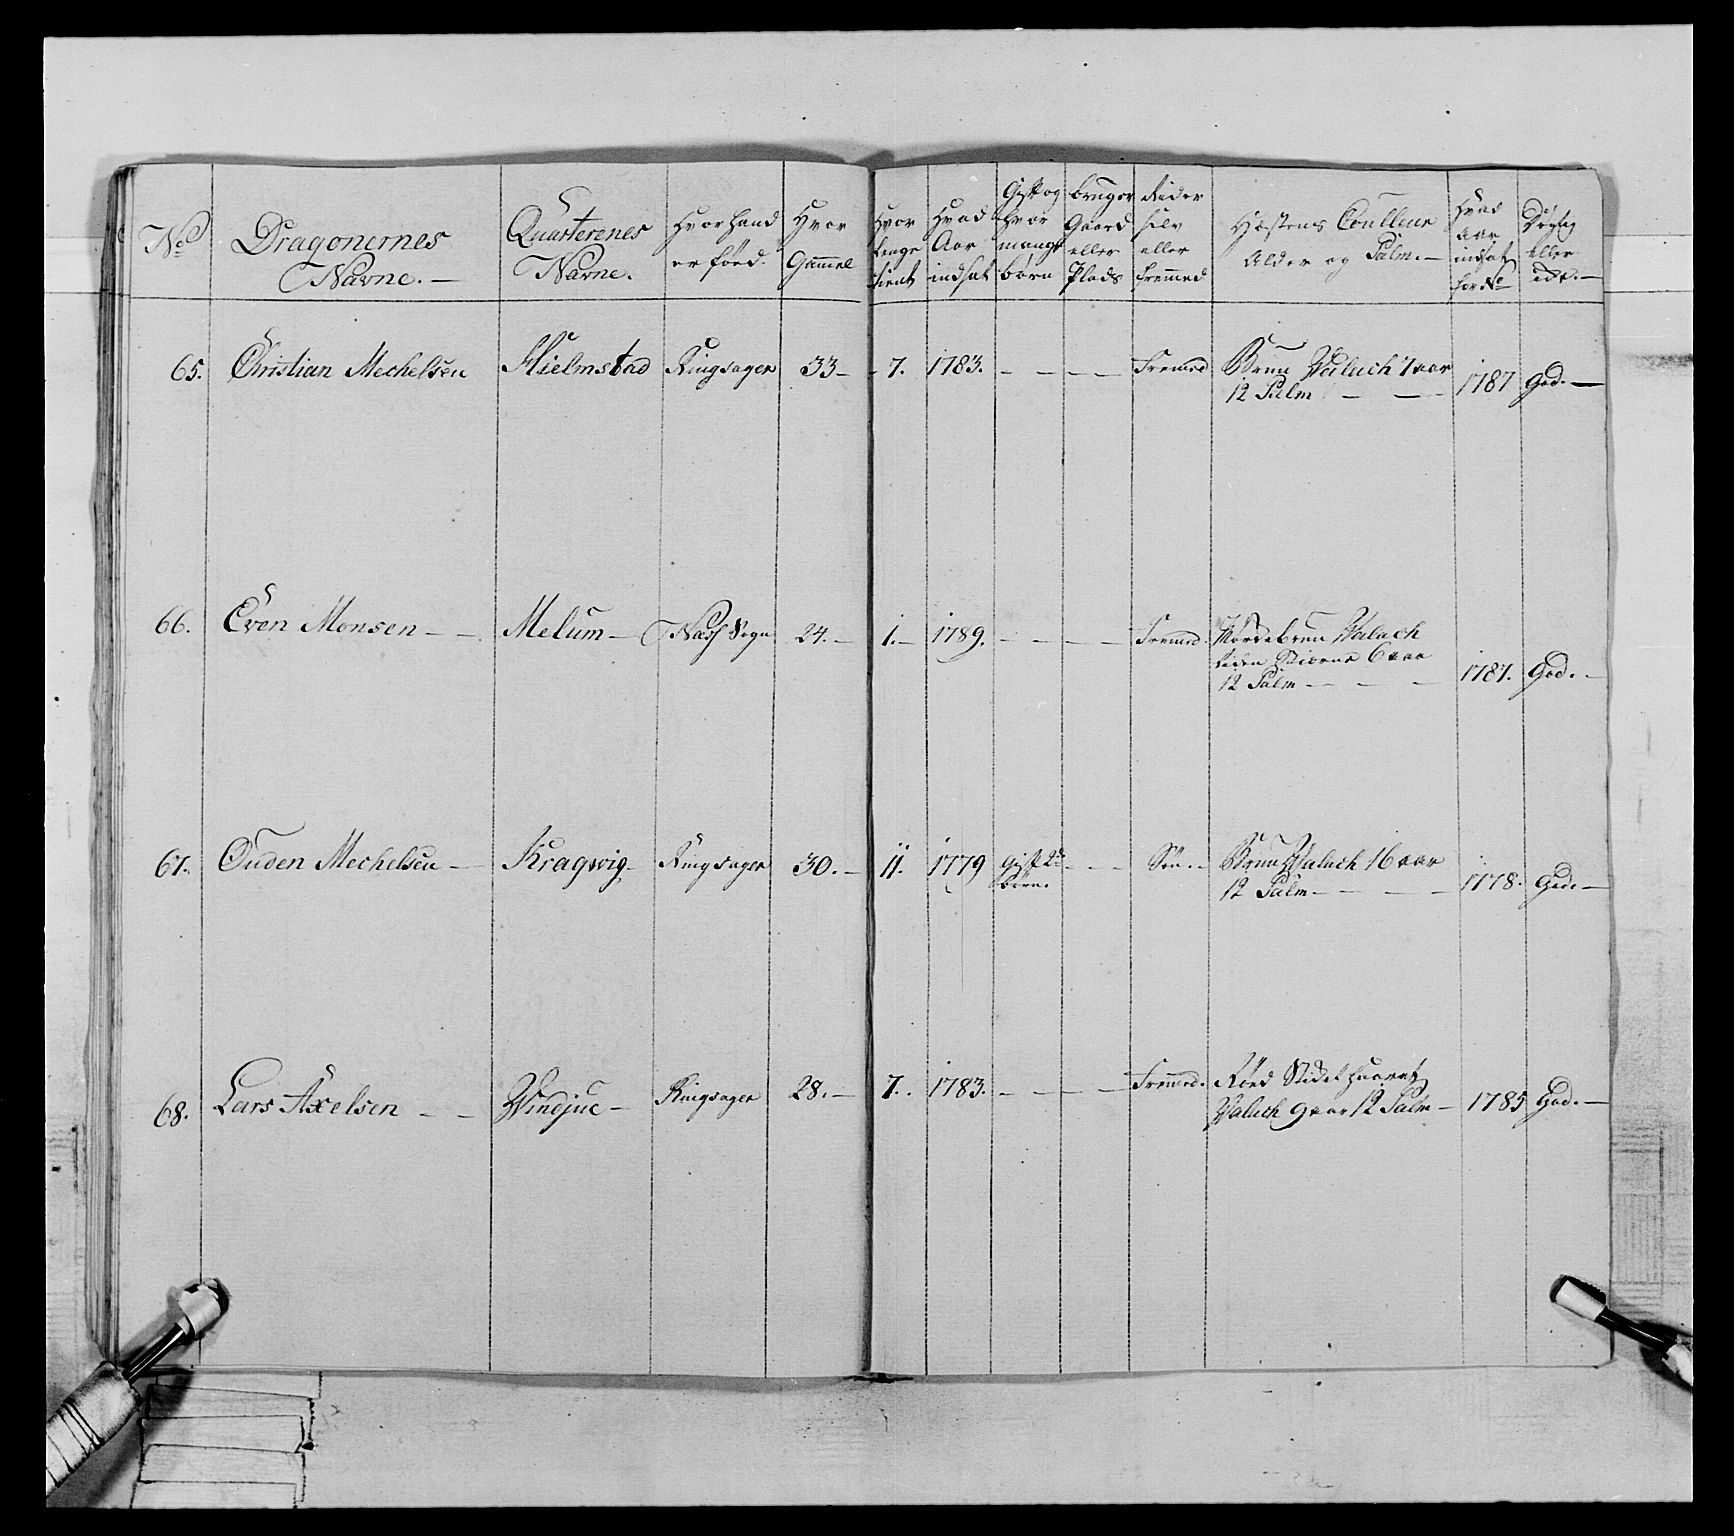 No
Dragonernes
Navne. —
Quarterenes
Navne.
Hvor hand
er föed.
Hvor
Gammel
Hvor
lenge
tient
Hvad
Aar
indsat
Gift og
hvor
mange
börn
bruger
Gaard
eller
Plads
Rider
selv
eller
fremmed
Hæstens Coulleur
Alder og Palm. —
Hvad
aar
indsat
for No
Dögtig
eller
—
65. Christian Mechelsen Hielmstad Ringsager 33 — 7. 1783. — — — — Fremed Bruun Valach 7 aar
12 Palm — — — 1787 God. —
66. Even Monsen — — Melum — Næss Sogn 24. — 1. — 1789. — — — — Fremed. Mördebrun Valach
liden Stierne 6 aar
12 Palm — — — 1787. God. —
67. Ouden Mechelsen — Kragwig — Ringsager 30. — 11. 1779 Gift 2
Börn. — — — Sön. — Bruun Valach 16 aar
12 Palm — — — — 1778. God. —
68. Lars Axelsen — — Windjue — Ringsager 28. — 7. 1783. — — — — Fremed. Röed Stidelhaaret
Valach 9 aar 12 Palm — 1785 God. —